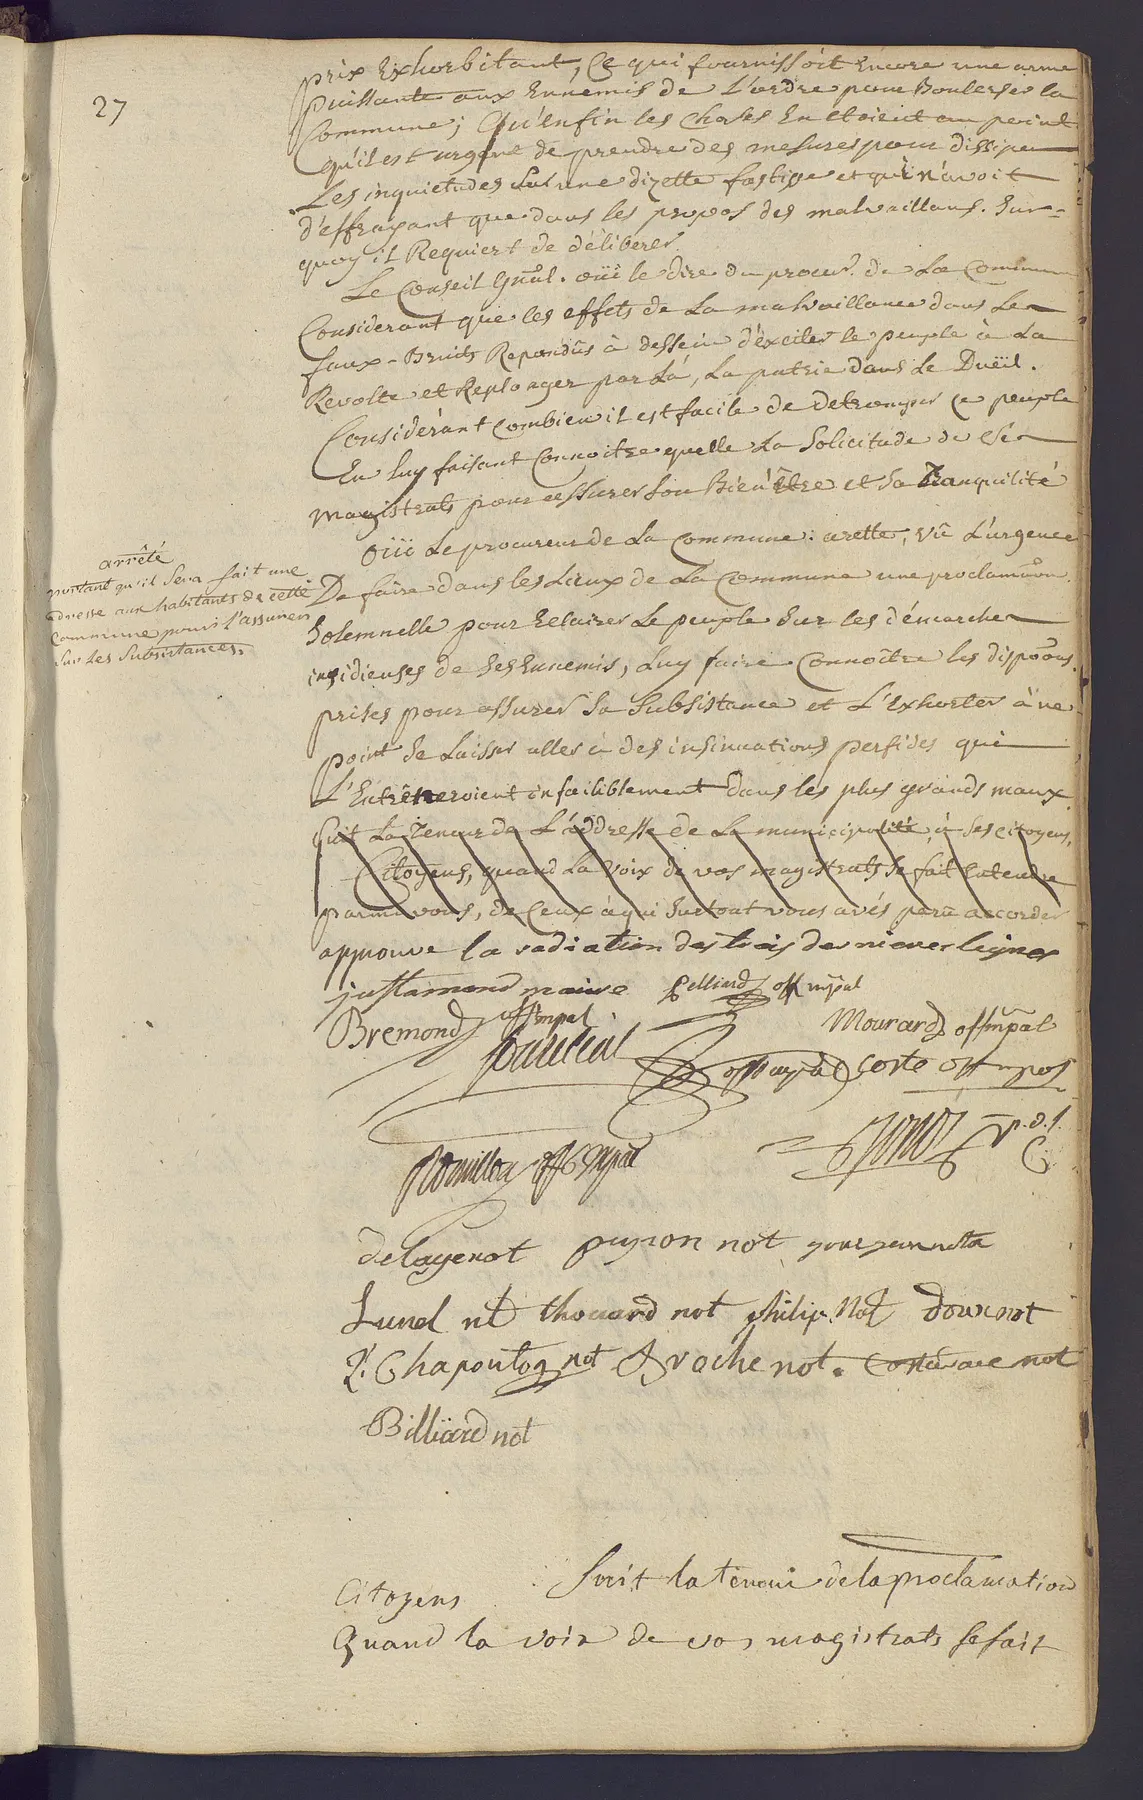 27
prix Exhorbitant, Ce qui fournissoit Encore une arme
puissante aux Ennemis de L'ordre pour Boulerser la
Commune; Qu'enfin les choses En etoient au point
qu'il est urgent de prendre des mesures pour dissiper
Les inquietudes sur une dizette factice et qui n'avoit
d'effrayant que dans les propos des malvaillans. Sur=
quoy il Requiert de déliberer.
Le Conseil gñal. oüi le dire du procur. de La Commune
Considerant que les effets de La malvaillance dans Les
faux-Bruits Repandûs à dessein d'éxciter le peuple à La
Revolte et Replonger par Là, La patrie dans Le Düeil.
Considérant Combien il est facile de detromper ce peuple
En Luy faisant Connoitre quelle La Solicitude de Ses
magistrats pour assurer son Bien être et sa Tranquilité
oüi Le procureur de La Commune: arrette, Vû L'urgence
De faire dans les Lieux de La Commune une proclamõn
Solemnelle pour Eclairer Le peuple Sur les démarches
insidieuses de Ses Ennemis, Luy faire Connoître les dispõons
prises pour assurer Sa Subsistance et L'Exhorter à ne
point Se Laisser aller à des insinuations perfides qui
L'Entrêneroient infailiblement dans les plus grands maux
Suit La Teneur de L'addresse de La municipalité à ses citoyens,
Citoyens, quand La Voix de vos magistrats Se fait Entendre
parmi vous, de Ceux à qui Surtout vous avés parû accorder
arrêté
portant qu'il Sera fait une
adresse aux habitants de cette
Commune pour l'assurer
Sur Les Subsistances.
approuve la radiation des trois dernieres lignes
justamond maire pelliard off mpal
Bremond off mpal Mourard off mpal
off mpal Coste off mpal
Rouillon off mpal
p. d. l.
C
delaye not peyron not
Lunel nt thouard not philip. Not doux not
L. Chapouton not A roche not.
Billiard not
Suit la teneur de la proclamation
Citoyens
Quand la voix de vos magistrats se fait